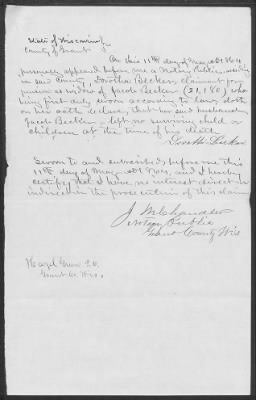 State of Wisconsin
County of Grant
On this 11th day of May AD 1864
personally appeared before me a Notary Public, within
in said County, Dorothea Becker, claimant for
pension as widow of Jacob Becker (21,180) who
being first duly sworn according to law, doth
on her oath declare, that her said husband
Jacob Becker left no surviving child or
children at the time of his death
Becker
Sworn to and subscribed before me this
11th day of May AD and I hereby
certify that I have no interest direct or
indirect in the prosecution of this claim
J. M. Chandler
Notary Public
Grant County Wis
Hazel Green P.O.
Grant Co. Wis.